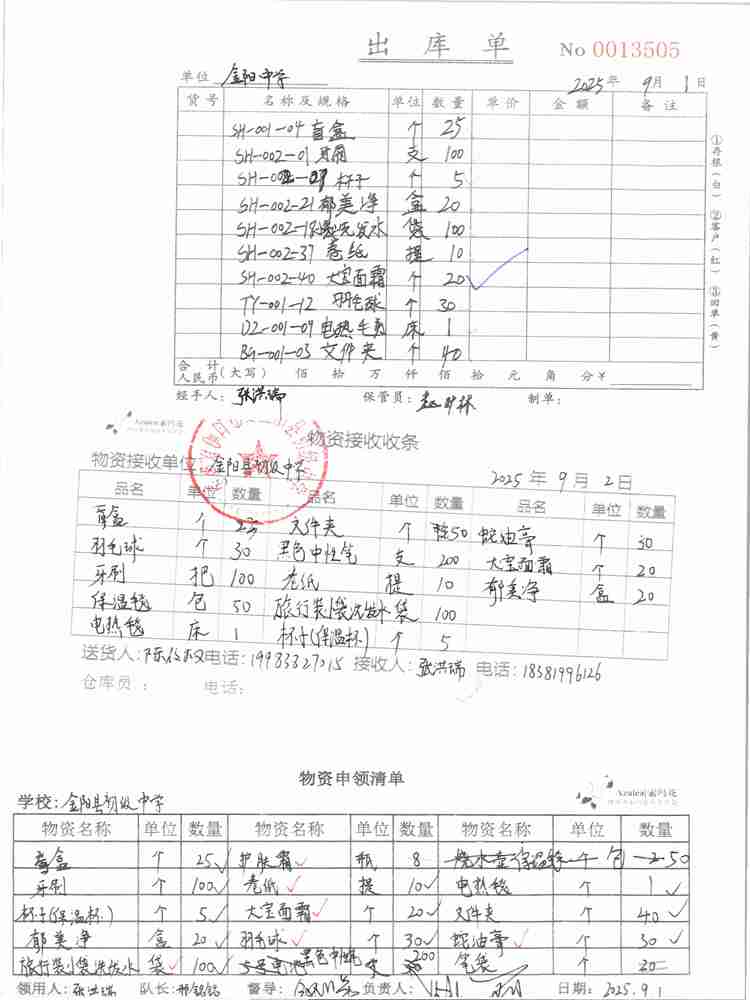 出库单 No 0013505
单位 金阳中学 2025年 9月 1日
货号 名称及规格 单位 数量 单价 金额 备注
SH-001-04 盲盒 个 25
SH-002-01 牙刷 支 100
杯子 个 5
SH-002-21 郁美净 盒 20
洗发水 袋 100
SH-002-37 卷纸 提 10
SH-002-40 大宝面霜 个 20
TY-001-12 羽毛球 个 30
DZ-001-09 电热毛毯 床 1
BG-001-03 文件夹 个 40
合计
人民币(大写) 佰 拾 万 仟 佰 拾 元 角 分¥
经手人: 张洪瑞 保管员: 制单:
①存根(白) ②客户(红) ③回单(黄)
Azalea|索玛花
物资接收收条
物资接收单位:金阳县初级中学 2025年9月2日
品名 单位 数量 品名 单位 数量 品名 单位 数量
盲盒 个 25 文件夹 个 50 蛇油膏 个 30
羽毛球 个 30 黑色中性笔 支 200 大宝面霜 个 20
牙刷 把 100 卷纸 提 10 郁美净 盒 20
保温毯 包 50 旅行装小袋洗发水 袋 100
电热毯 床 1 杯子(保温杯) 个 5
送货人: 电话:19983327015 接收人:张洪瑞 电话:18381996126
仓库员: 电话:
物资申领清单
Azalea|索玛花
学校:金阳县初级中学
物资名称 单位 数量 物资名称 单位 数量 物资名称 单位 数量
盲盒 个 25 护肤霜 瓶 8 烧水壶 保温毯 个 包 2 50
牙刷 个 100 卷纸 提 10 电热毯 个 1
杯子(保温杯) 个 5 大宝面霜 个 20 文件夹 个 40
郁美净 盒 20 羽毛球 个 30 蛇油膏 个 30
旅行装小袋洗发水 袋 100 黑色中性笔 支 200 笔袋 个 20
领用人:张洪瑞 队长: 督导: 负责人: 日期:2025.9.1